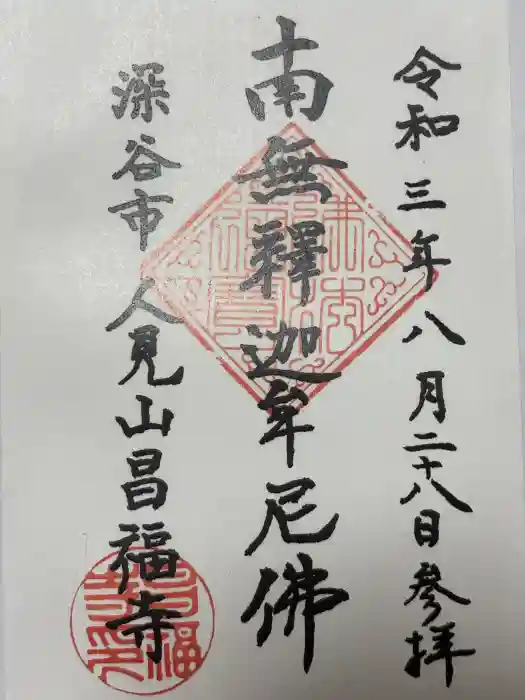 令和三年八月二十八日參拝
南無釋迦牟尼佛
深谷市 人見山昌福寺